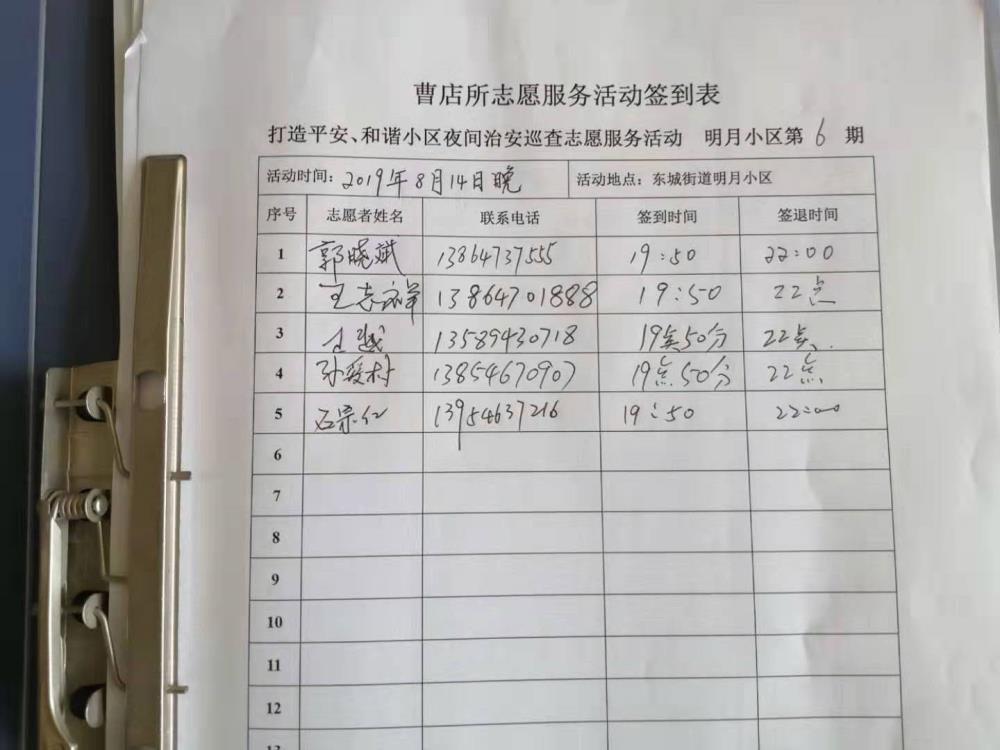 曹店所志愿服务活动签到表
打造平安、和谐小区夜间治安巡查志愿服务活动 明月小区第 6 期
活动时间：2019年8月14日晚 活动地点：东城街道明月小区
序号 志愿者姓名 联系电话 签到时间 签退时间
1 郭晓斌 13864737555 19:50 22:00
2 王志祥 13864701888 19:50 22点
3 13589430718 19点50分 22点.
4 孙爱村 13854670907 19点50分 22点
5 石宗仁 13954637216 19:50 22:00
6
7
8
9
10
11
12
13